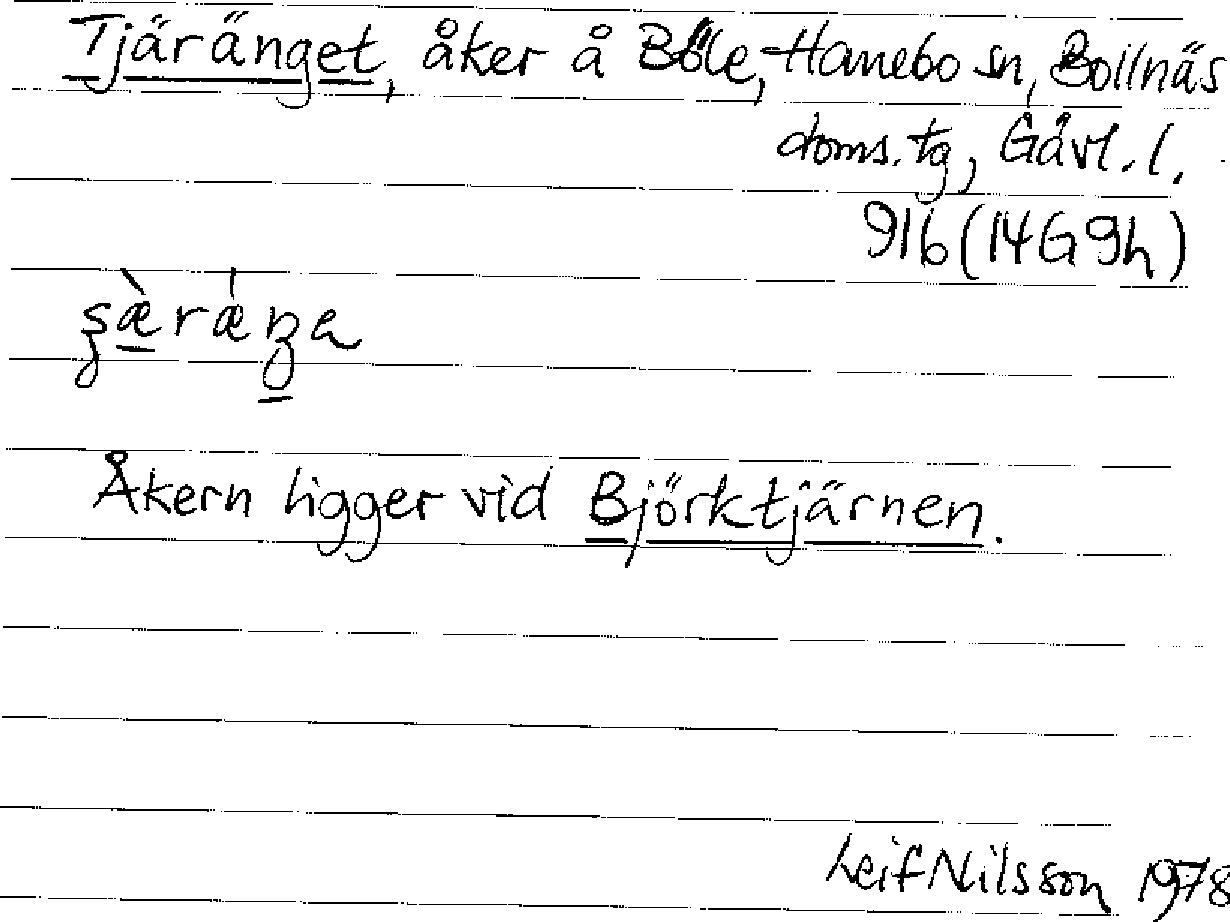 Tjäränget, åker å Böle, Hanebo sn, Bollnäs
doms.tg, Gävl.l.
916 (14G 9h)
Åkern ligger vid Björktjärnen.
Leif Nilsson 1978